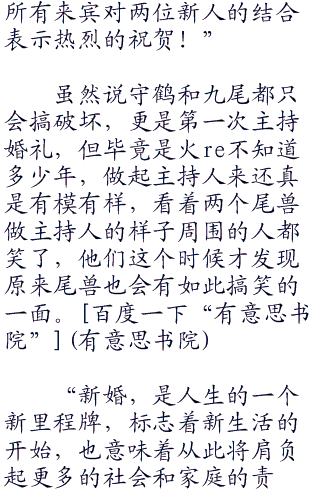 所有来宾对两位新人的结合
表示热烈的祝贺！”
虽然说守鹤和九尾都只
会搞破坏，更是第一次主持
婚礼，但毕竟是火re不知道
多少年，做起主持人来还真
是有模有样，看着两个尾兽
做主持人的样子周围的人都
笑了，他们这个时候才发现
原来尾兽也会有如此搞笑的
一面。[百度一下“有意思书
院”](有意思书院)
“新婚，是人生的一个
新里程牌，标志着新生活的
开始，也意味着从此将肩负
起更多的社会和家庭的责